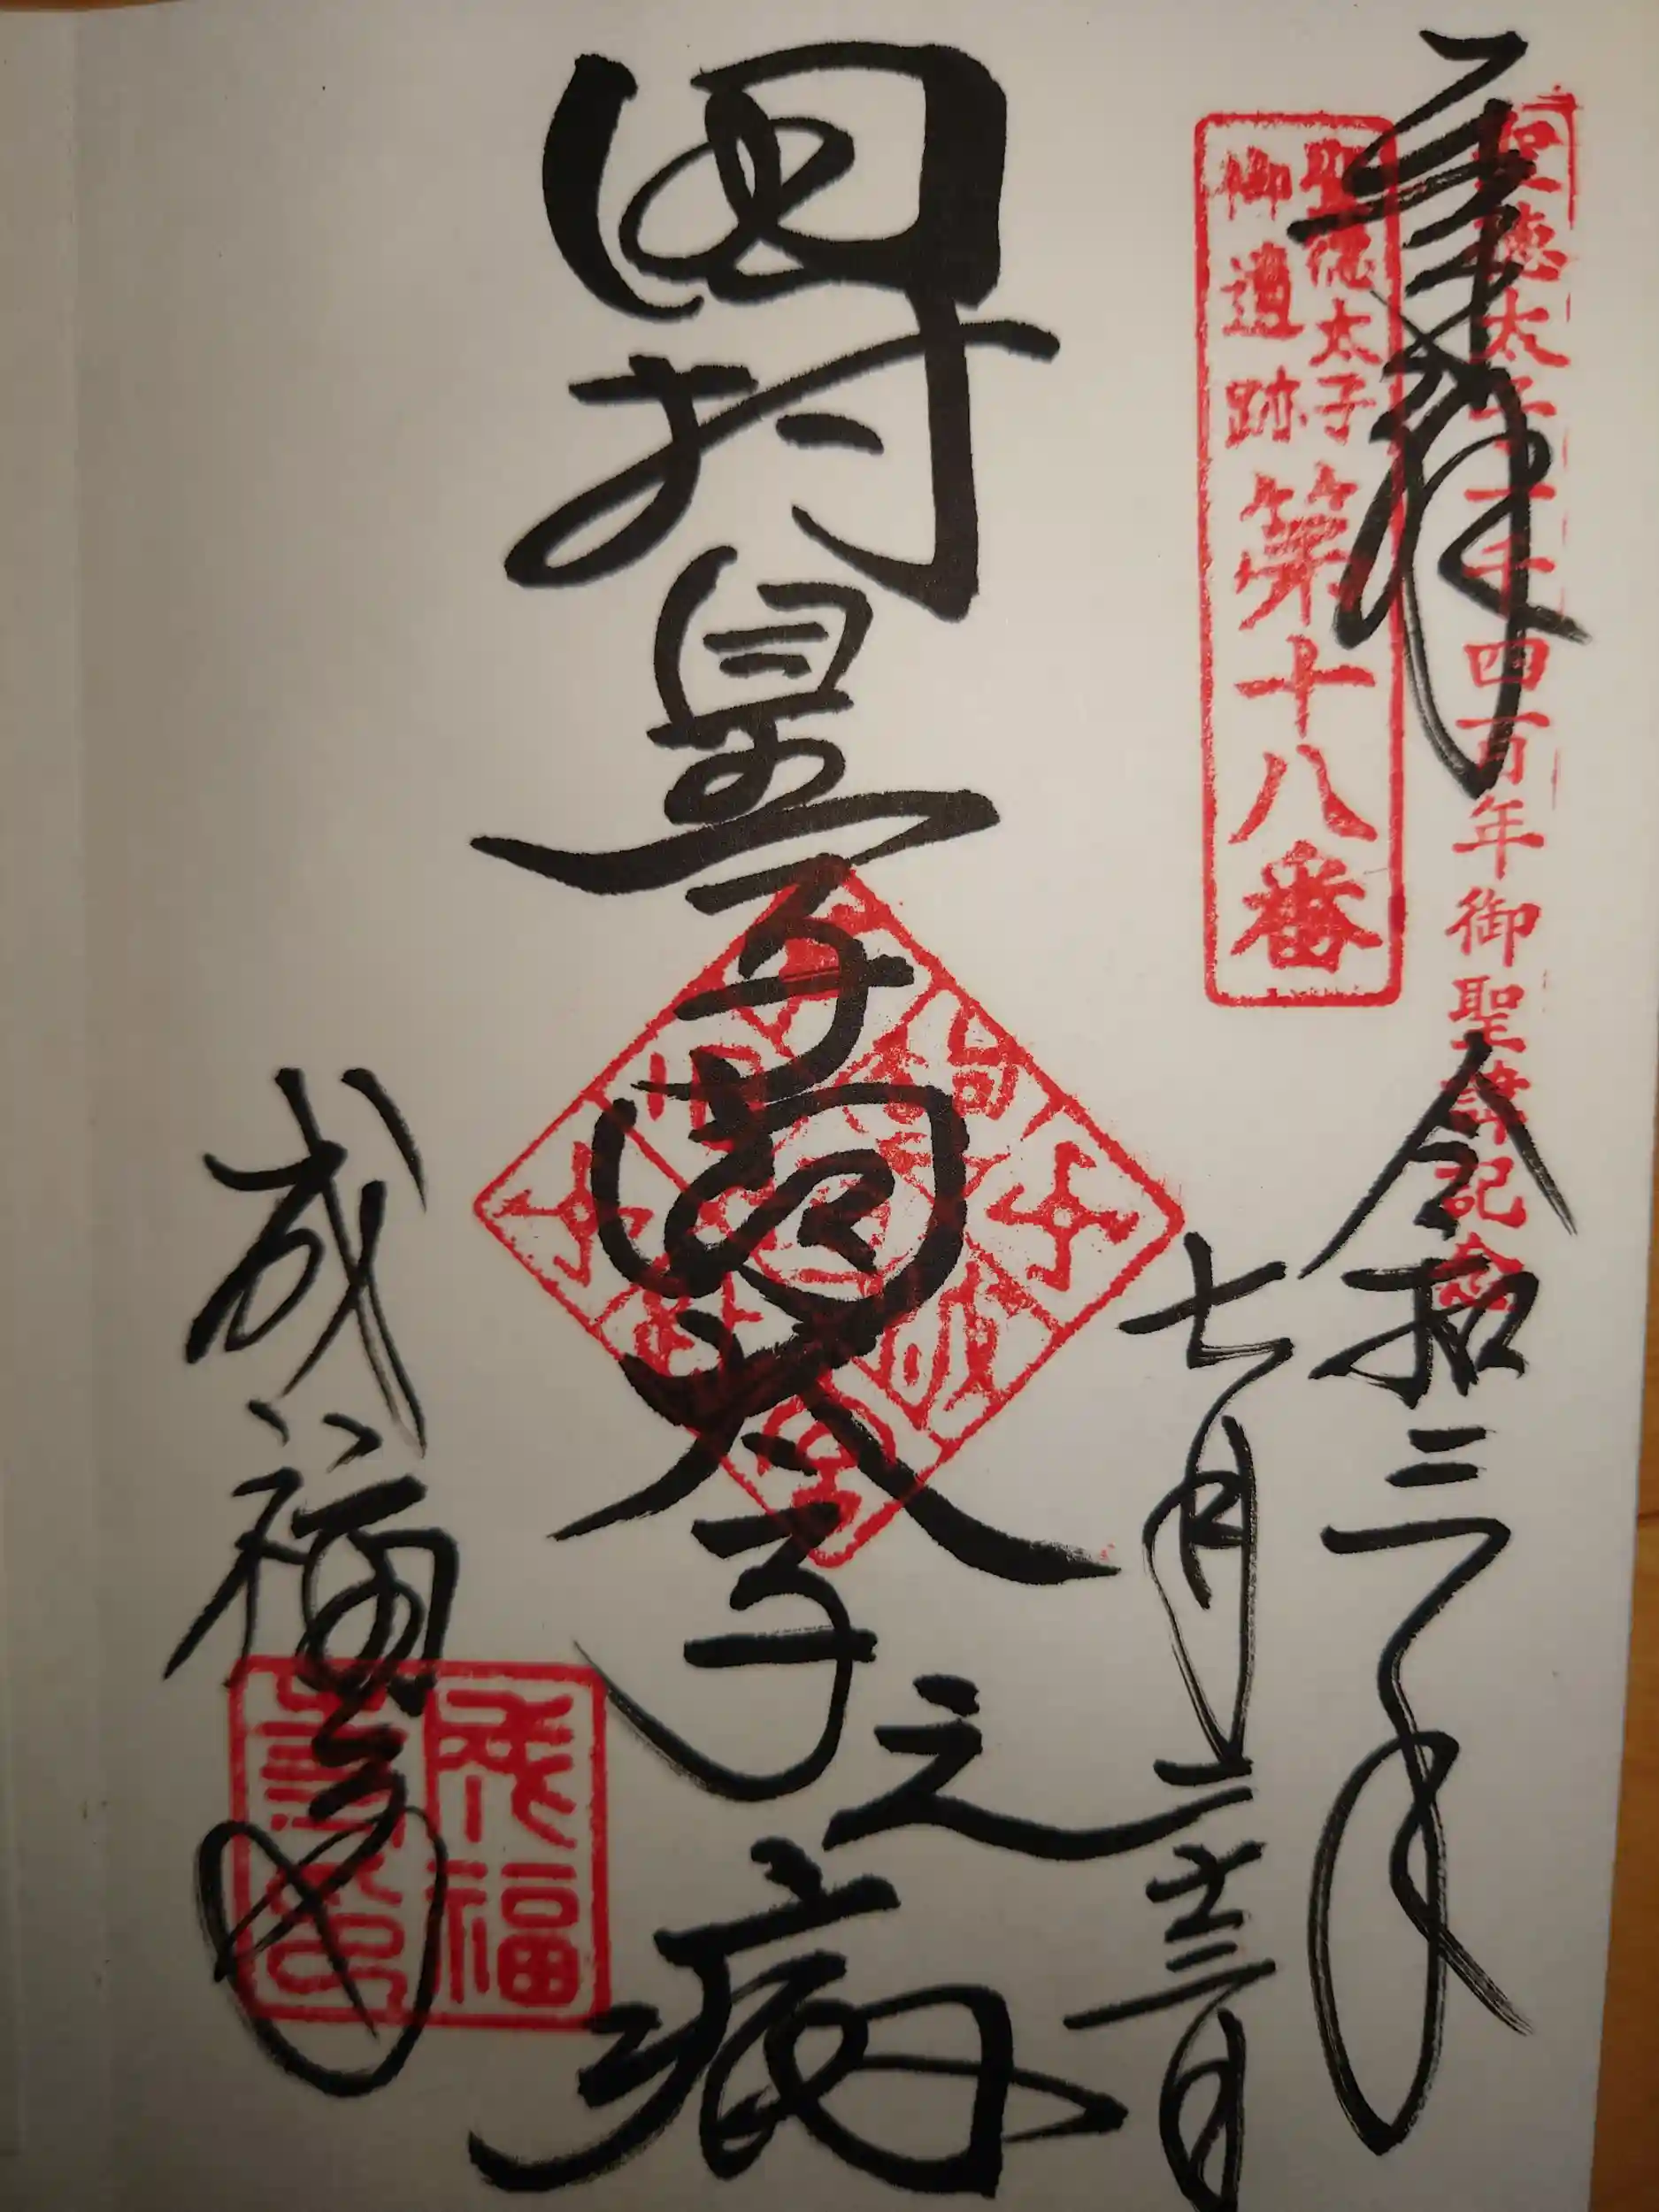 奉拝
聖徳太子一千四百年御聖諱記念
令和三年
聖徳太子
御遺跡
第十八番
七月二十三日
田村皇子問太子之病
成福寺
成福
寺印